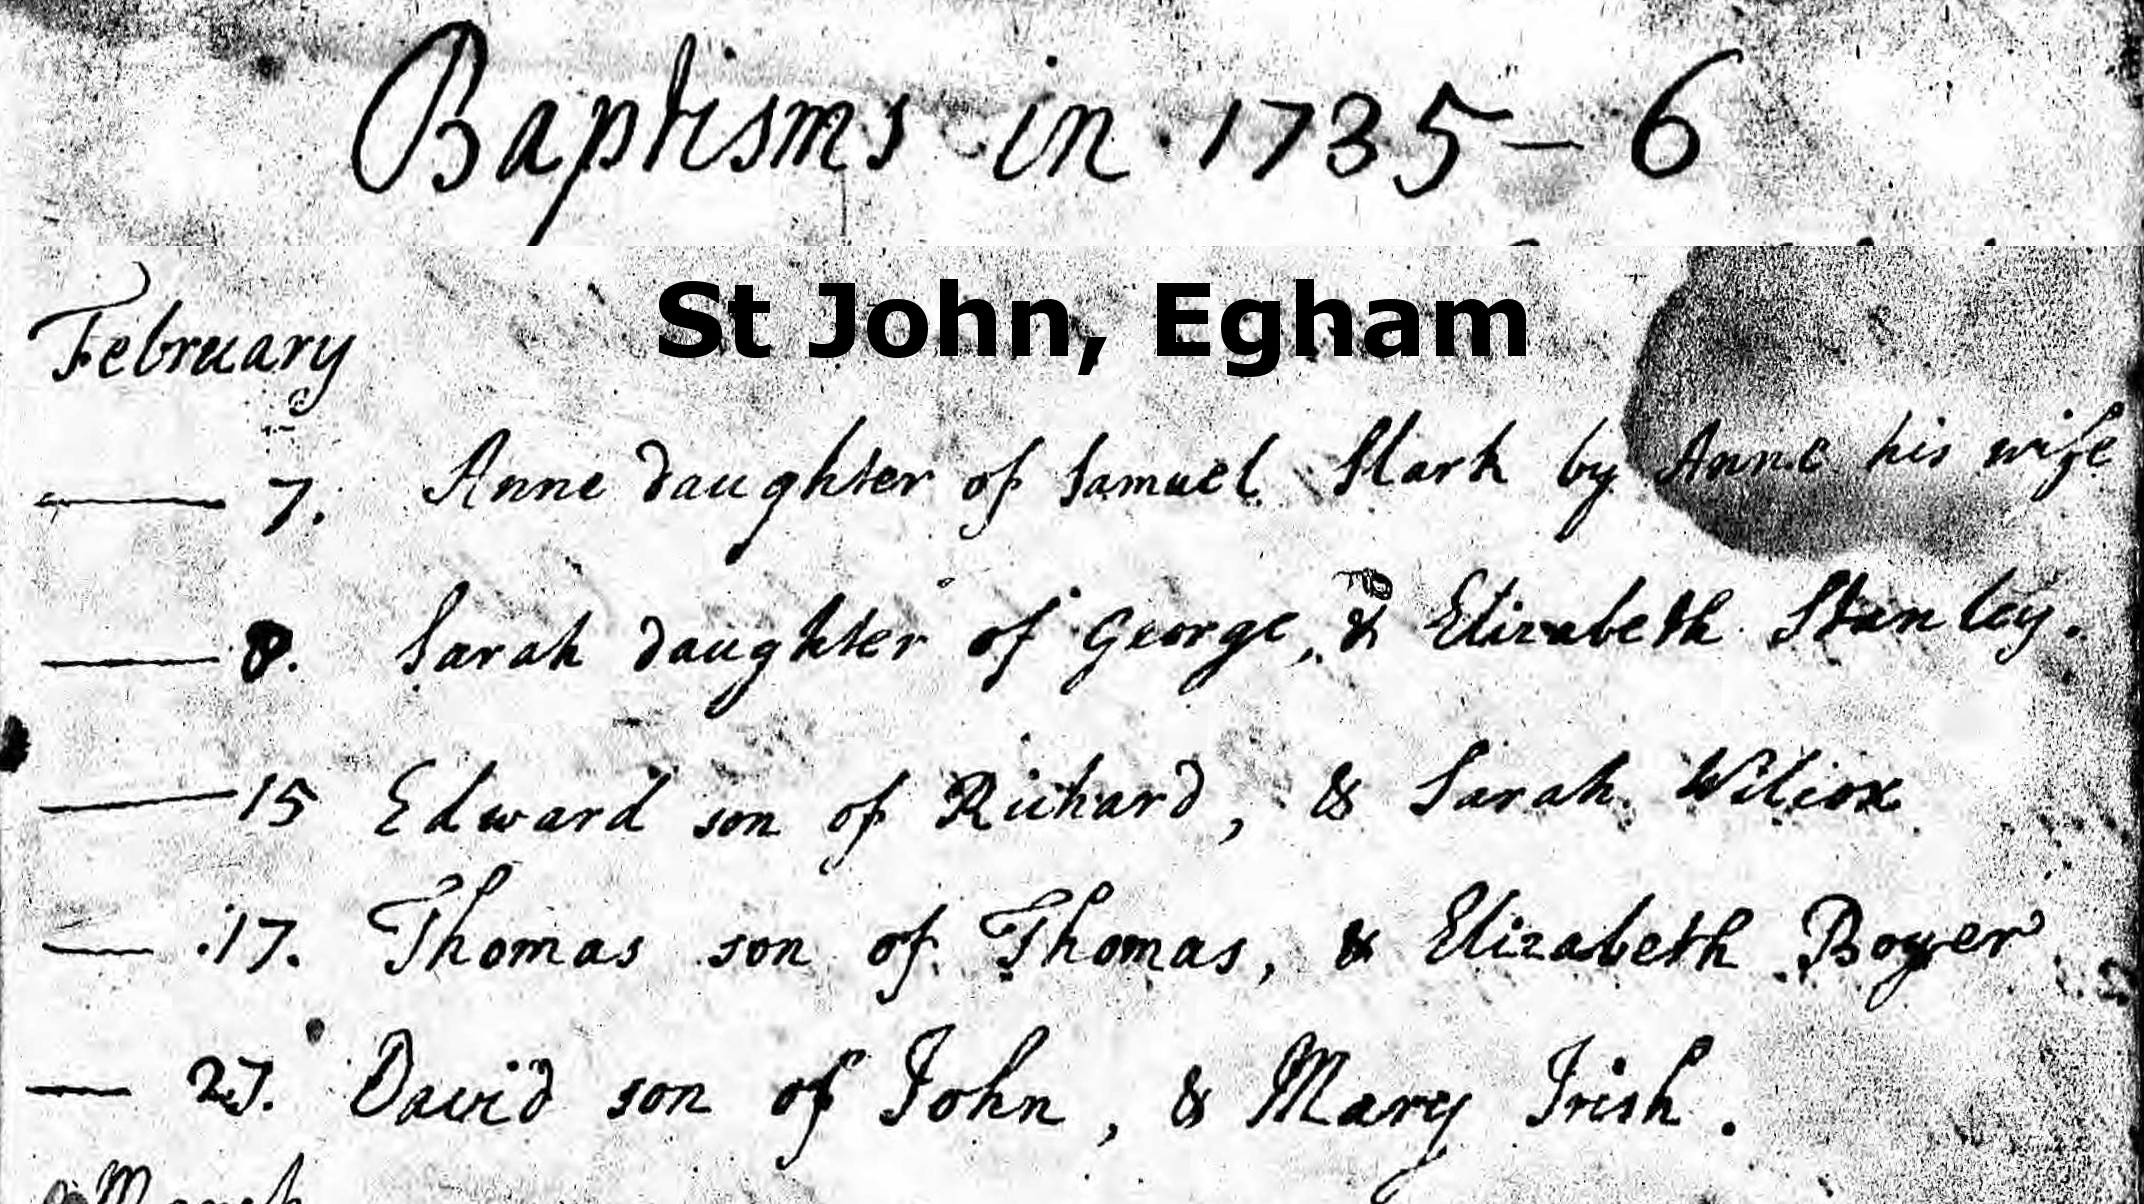 Baptisms in 1735-6
St John, Egham
February
7. Anne daughter of Samuel Stark by Anne his wife
8. Sarah daughter of George, & Elizabeth Stanley.
15 Edward son of Richard, & Sarah Wilcox
17. Thomas son of Thomas, & Elizabeth Boyer
27. David son of John, & Mary Irish.
March